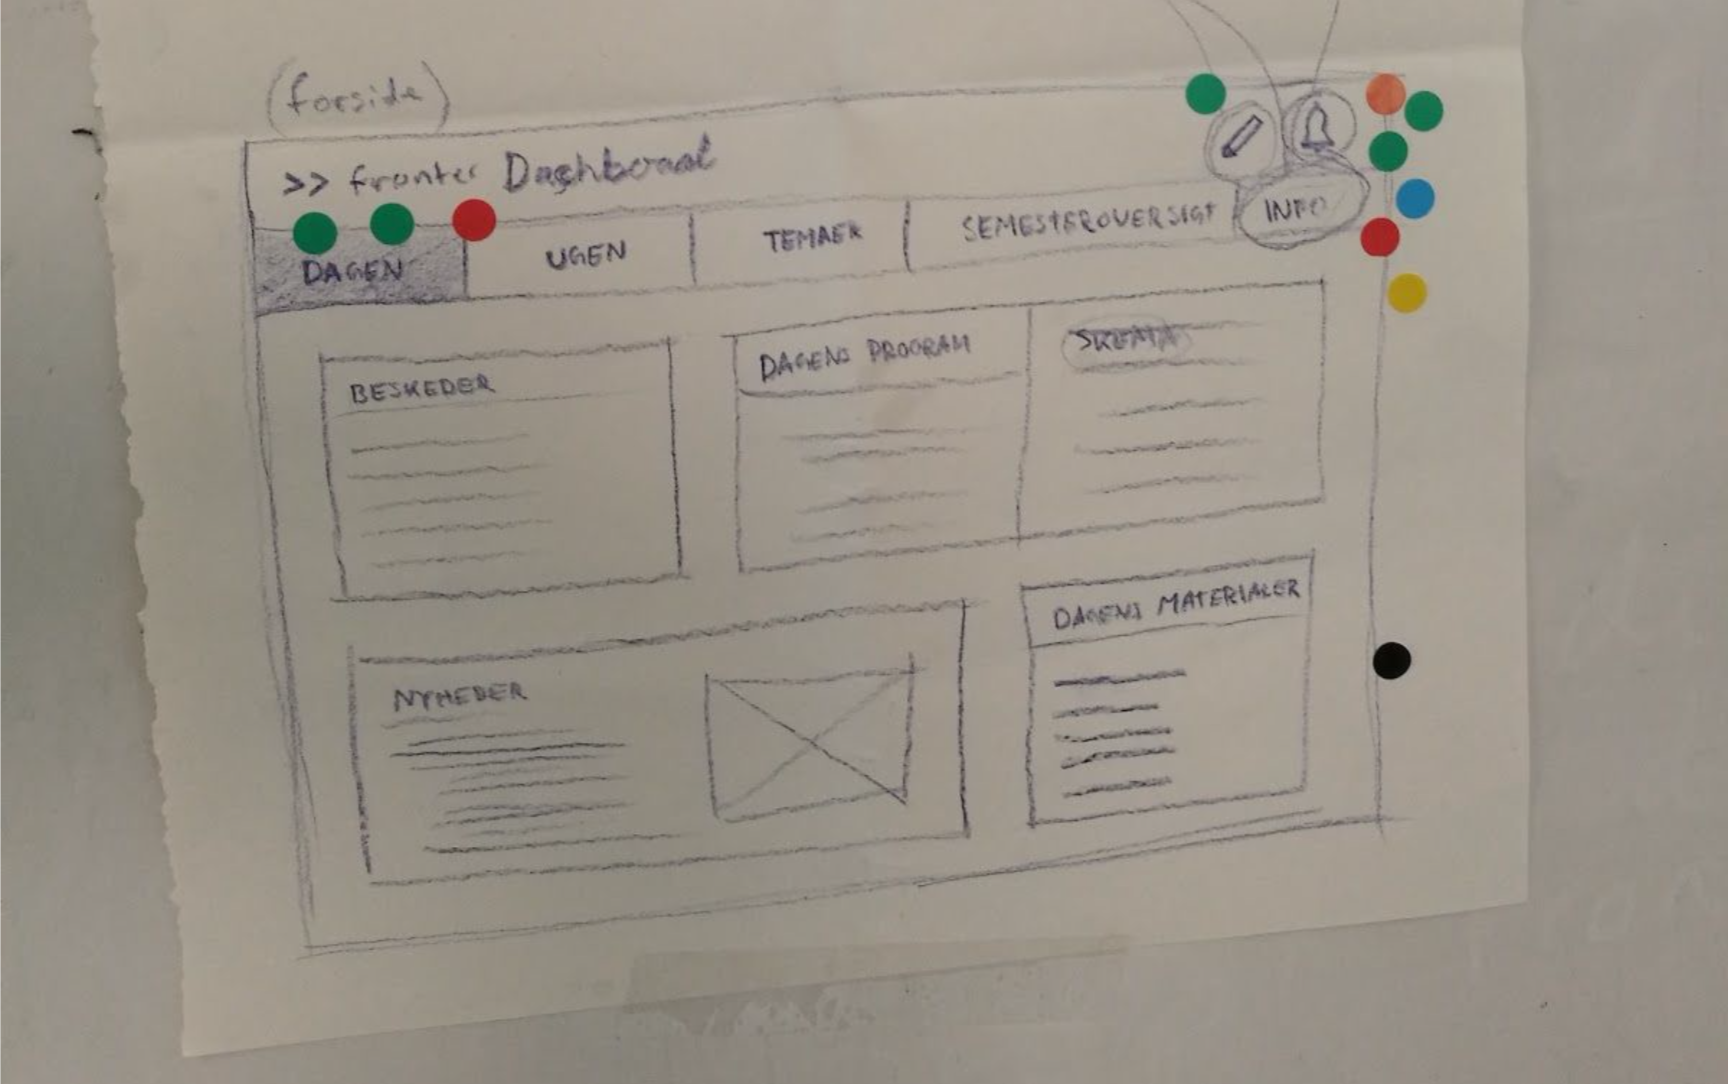 (forside)
>> fronter Dashboard
DAGEN UGEN TEMAER SEMESTEROVERSIGT INFO
BESKEDER
DAGENS PROGRAM
SKEMA
NYHEDER
DAGENS MATERIALER